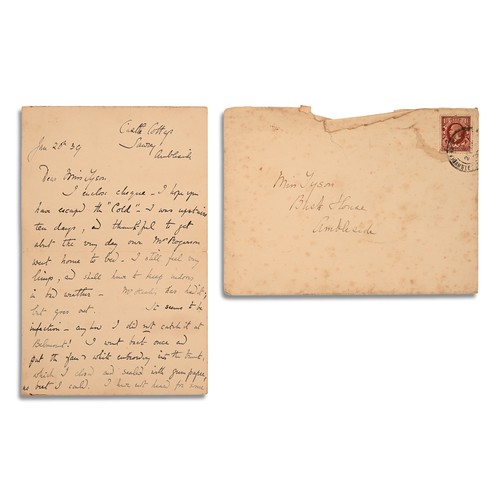 Castle Cottage
Sawrey
Ambleside
Jan 20th 39
Dear Miss Tyson
I enclose cheque – I hope you
have escaped the "Cold" – I was upstairs
ten days, and thankful to get
about the very day our Mr Rogerson
went home to bed – I still feel very
limp, and shall have to keep indoors
in bad weather – has had it;
but goes out. It seems to be
infection – any how I did not catch it at
Belmount! I went but once and
put the white embroidery into the trunk,
which I closed and sealed with gum paper,
as best I could. I have not heard
Miss Tyson
House
Ambleside